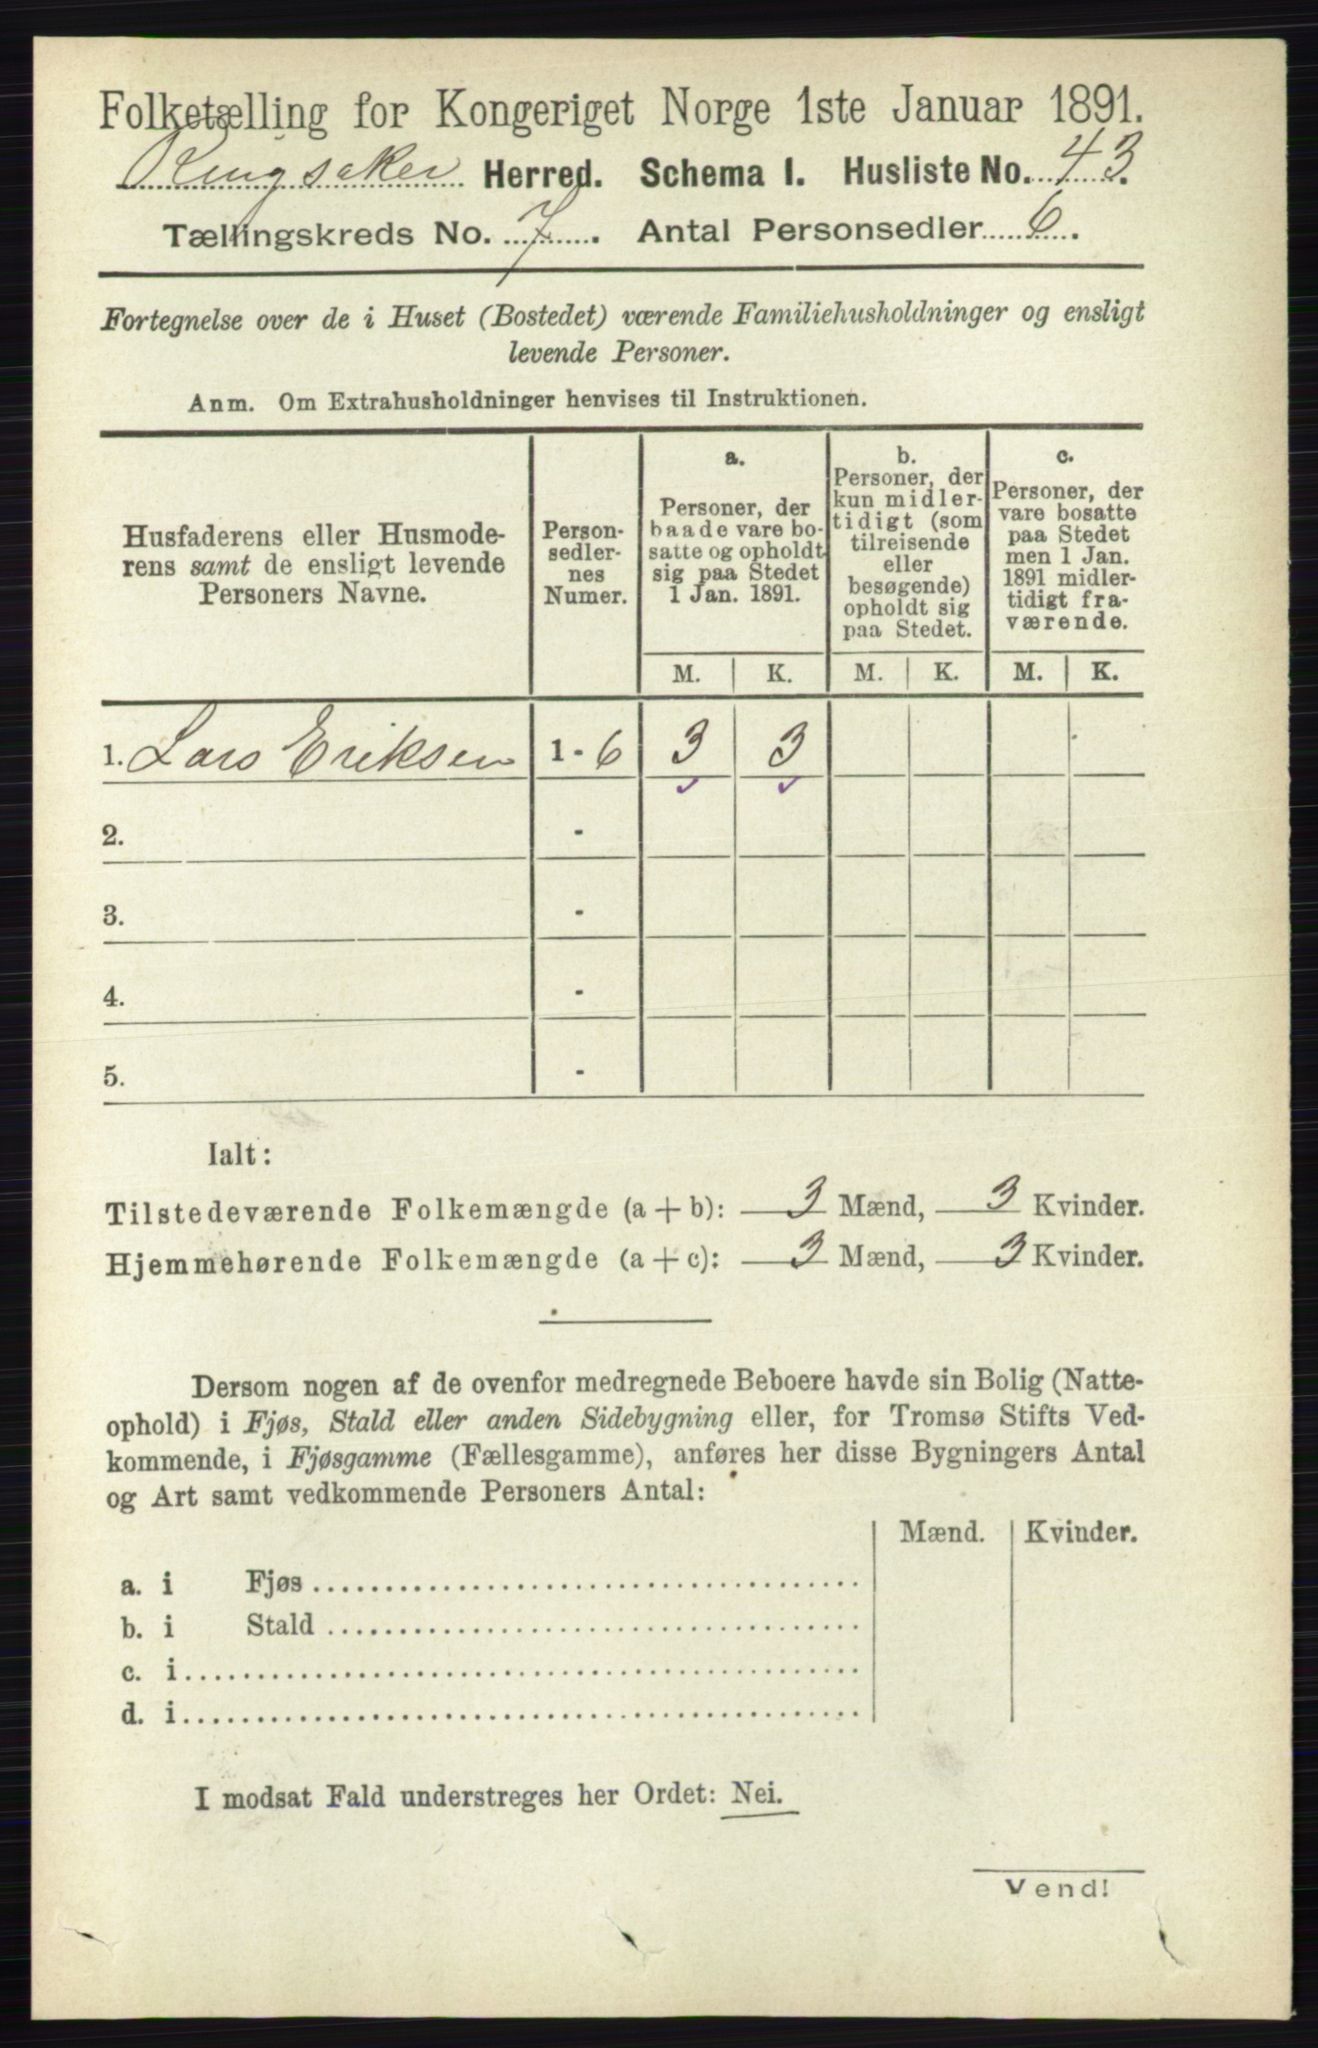 Folketælling for Kongeriget Norge 1ste Januar 1891.
Ringsaker Herred. Schema I. Husliste No. 43.
Tællingskreds No. 7. Antal Personsedler 6.
Fortegnelse over de i Huset (Bostedet) værende Familiehusholdninger og ensligt
levende Personer.
Anm. Om Extrahusholdninger henvises til Instruktionen.
Husfaderens eller Husmode-
rens samt de ensligt levende
Personers Navne.
Person-
sedler-
nes
Numer.
a.
Personer, der
baade vare bo-
satte og opholdt
sig paa Stedet
1 Jan. 1891.
b.
Personer, der
kun midler-
tidigt (som
tilreisende
eller
besøgende)
opholdt sig
paa Stedet.
c.
Personer, der
vare bosatte
paa Stedet
men 1 Jan.
1891 midler-
tidigt fra-
værende.
M. K. M. K. M. K.
1. Lars Eriksen 1 - 6 3 3
2. -
3. -
4. -
5. -
Ialt:
Tilstedeværende Folkemængde (a + b): 3 Mænd, 3 Kvinder.
Hjemmehørende Folkemængde (a + c): 3 Mænd, 3 Kvinder.
Dersom nogen af de ovenfor medregnede Beboere havde sin Bolig (Natte-
ophold) i Fjøs, Stald eller anden Sidebygning eller, for Tromsø Stifts Ved-
kommende, i Fjøsgamme (Fællesgamme), anføres her disse Bygningers Antal
og Art samt vedkommende Personers Antal:
Mænd. Kvinder.
a. i Fjøs
b. i Stald
c. i
d. i
I modsat Fald understreges her Ordet: Nei.
Vend!